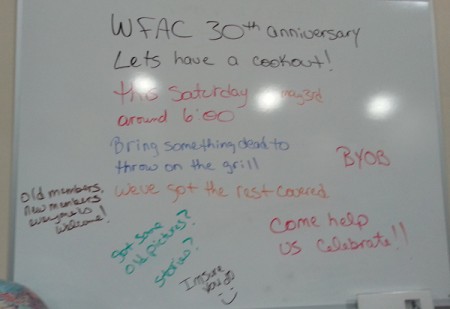 WFAC 30th anniversary
Lets have a cookout!
this Saturday may 3rd
around 6:00
Bring something dead to
throw on the grill
BYOB
we've got the rest covered
Old members,
new members
everyone is
welcome!
Got some
old pictures?
stories?
I'm sure
you do
Come help
us celebrate!!